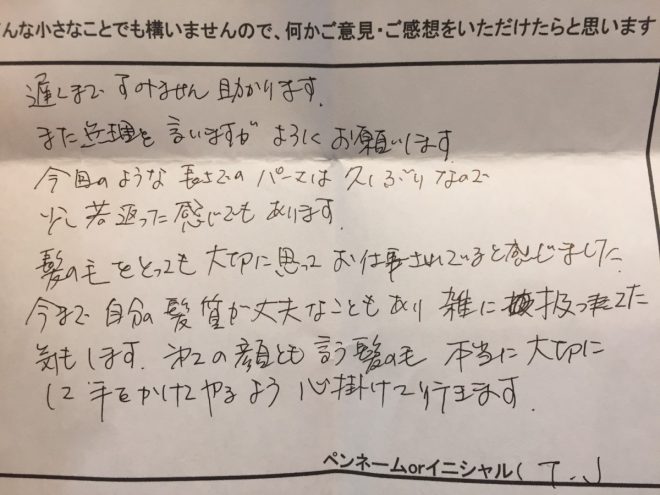 んな小さなことでも構いませんので、何かご意見・ご感想をいただけたらと思います
遅くまで すみません 助かります.
また無理を言いますが よろしくお願いします
今回のような長さでのパーマは久しぶりなので
少し若返った感じでもあります.
髪の毛をとっても大切に思ってお仕事されていると感じました.
今まで自分の髪質が丈夫なこともあり雑に扱ってた
気もします. 第2の顔とも言う髪の毛 本当に大切に
して手をかけてやるよう心掛けて行きます.
ペンネームorイニシャル( T.